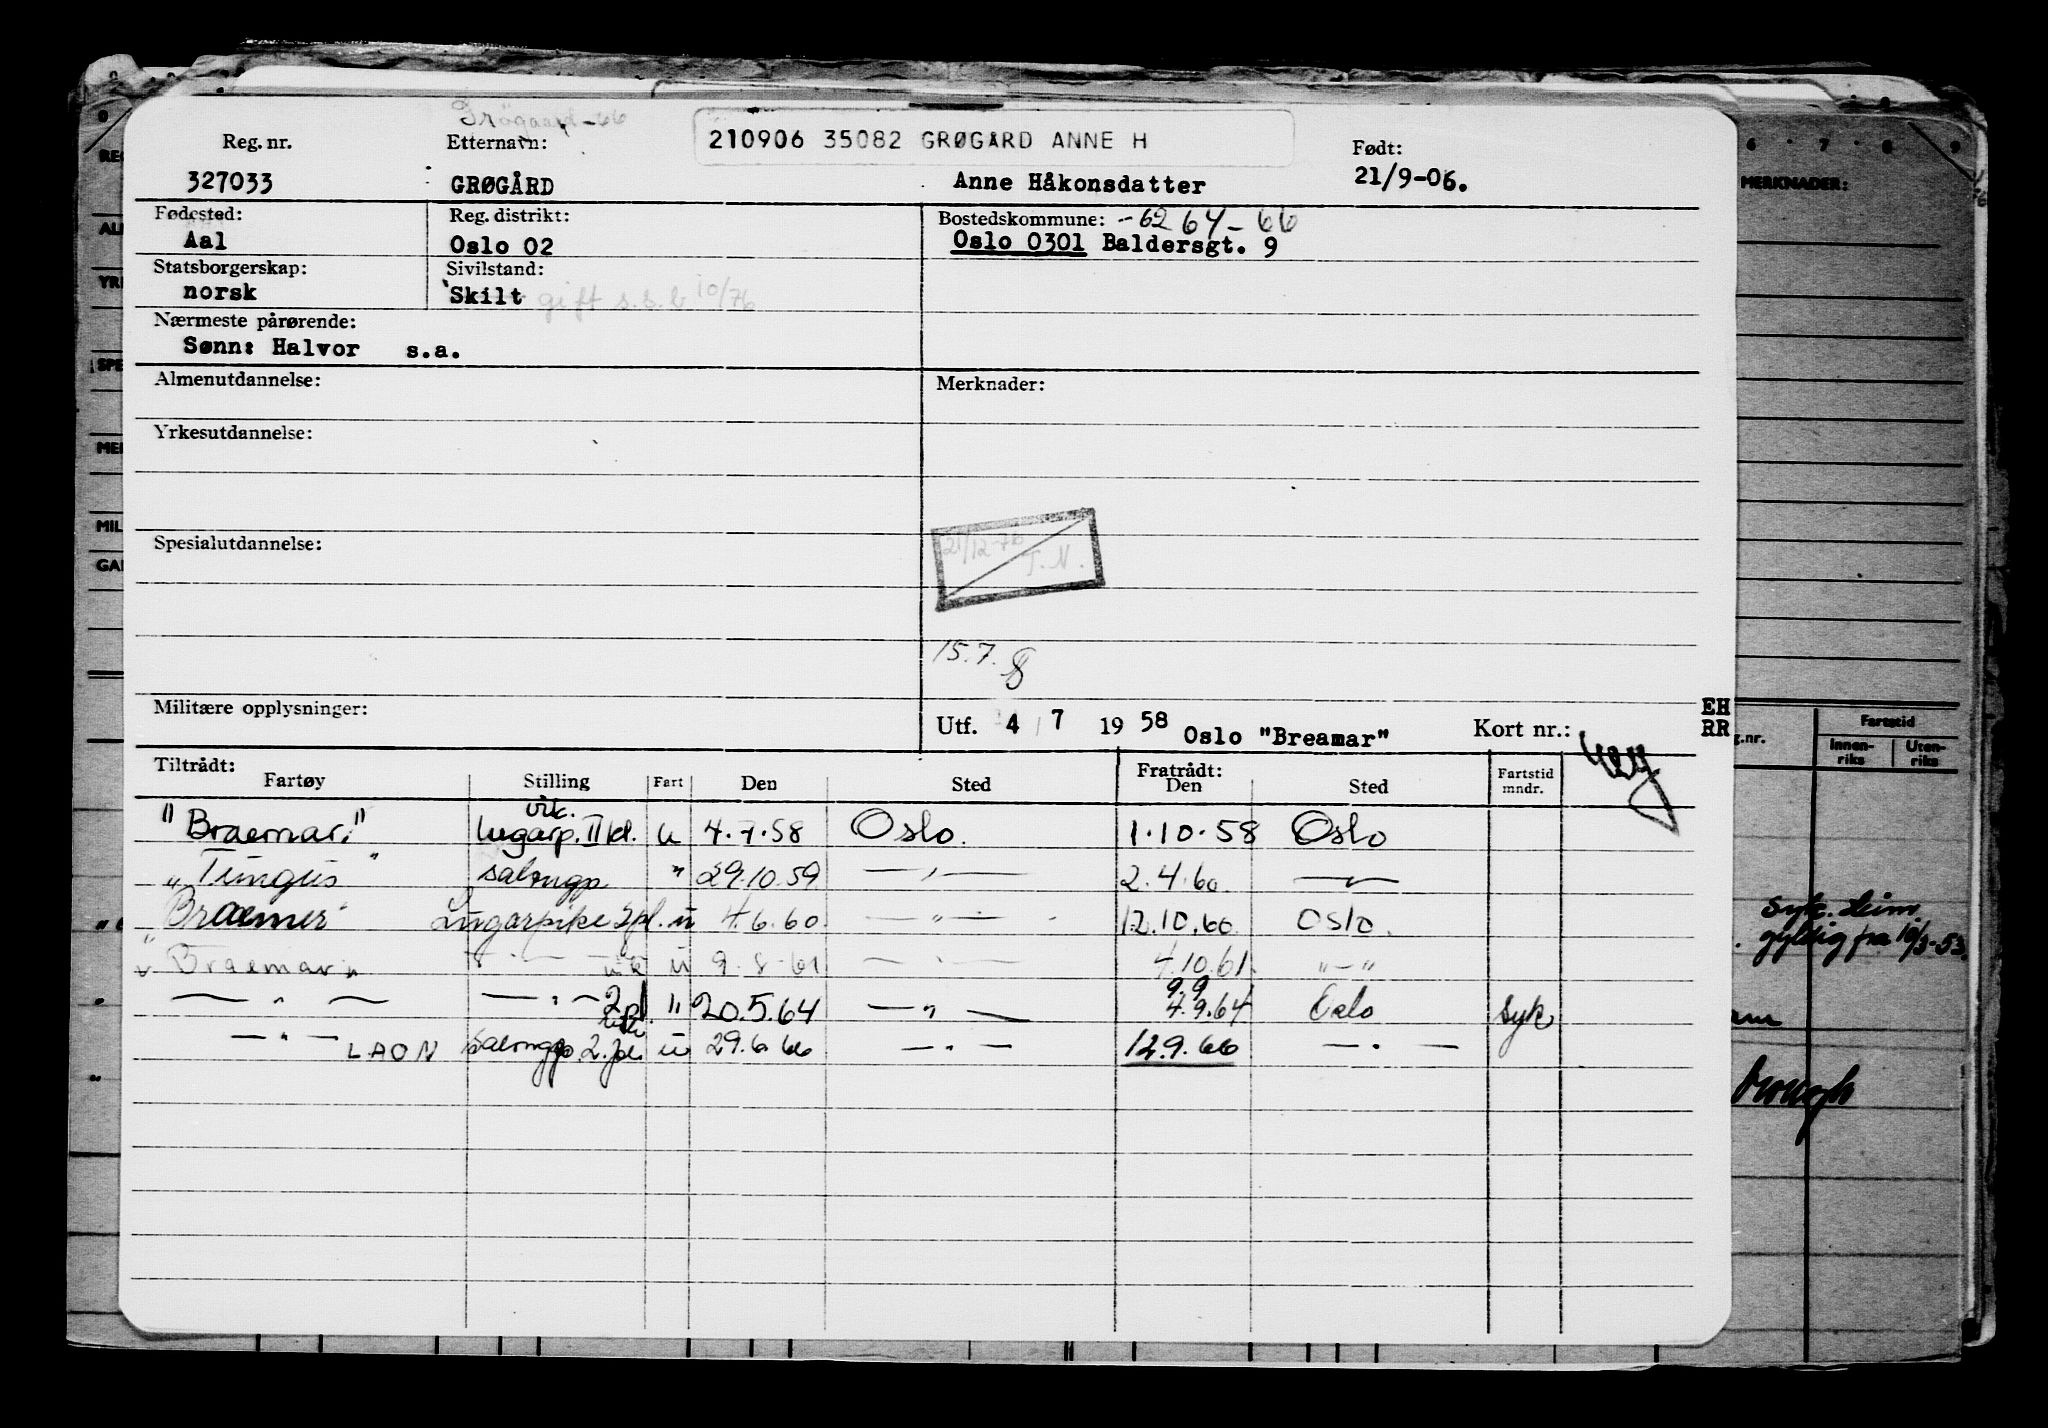 Grøgaard-66
Reg. nr. Etternavn: 210906 35082 GRØGARD ANNE H Født:
327033 GRØGÅRD Anne Håkonsdatter 21/9-06.
Fødested: Reg. distrikt: Bostedskommune: -62 64-66
Aal Oslo 02 Oslo 0301 Baldersgt. 9
Statsborgerskap: Sivilstand:
norsk Skilt gift s.s.b 10/76
Nærmeste pårørende:
Sønn: Halvor s.a.
Almenutdannelse: Merknader:
Yrkesutdannelse:
Spesialutdannelse: 21/12-76 T.N.
15.7.
Militære opplysninger: Utf. 4/7 1958 Oslo "Breamar" Kort nr.: EH
RR
Tiltrådt: Fratrådt:
Fartøy Stilling Fart Den Sted Den Sted Fartstid mndr.
vik.
"Braemar" lugarp. II kl. u 4.7.58 Oslo. 1.10.58 Oslo
"Tungus" salongp " 29.10.59 — " — 2.4.60 — " —
Braemer" Lugarpike 2pl. u 4.6.60 — " — 12.10.60 Oslo.
"Braemar" — " — vik u 9.8.61 — " — 4.10.61 " — "
9.9
— " — — " — 2pl. " 20.5.64 — " — 4.9.64 Oslo syk
— " — LAON salongp. 2. pl. u 29.6.66 — " — 12.9.66 — " —
MERKNADER:
Fartstid
Innen-riks Uten-riks
gyldig fra 10/3-53.